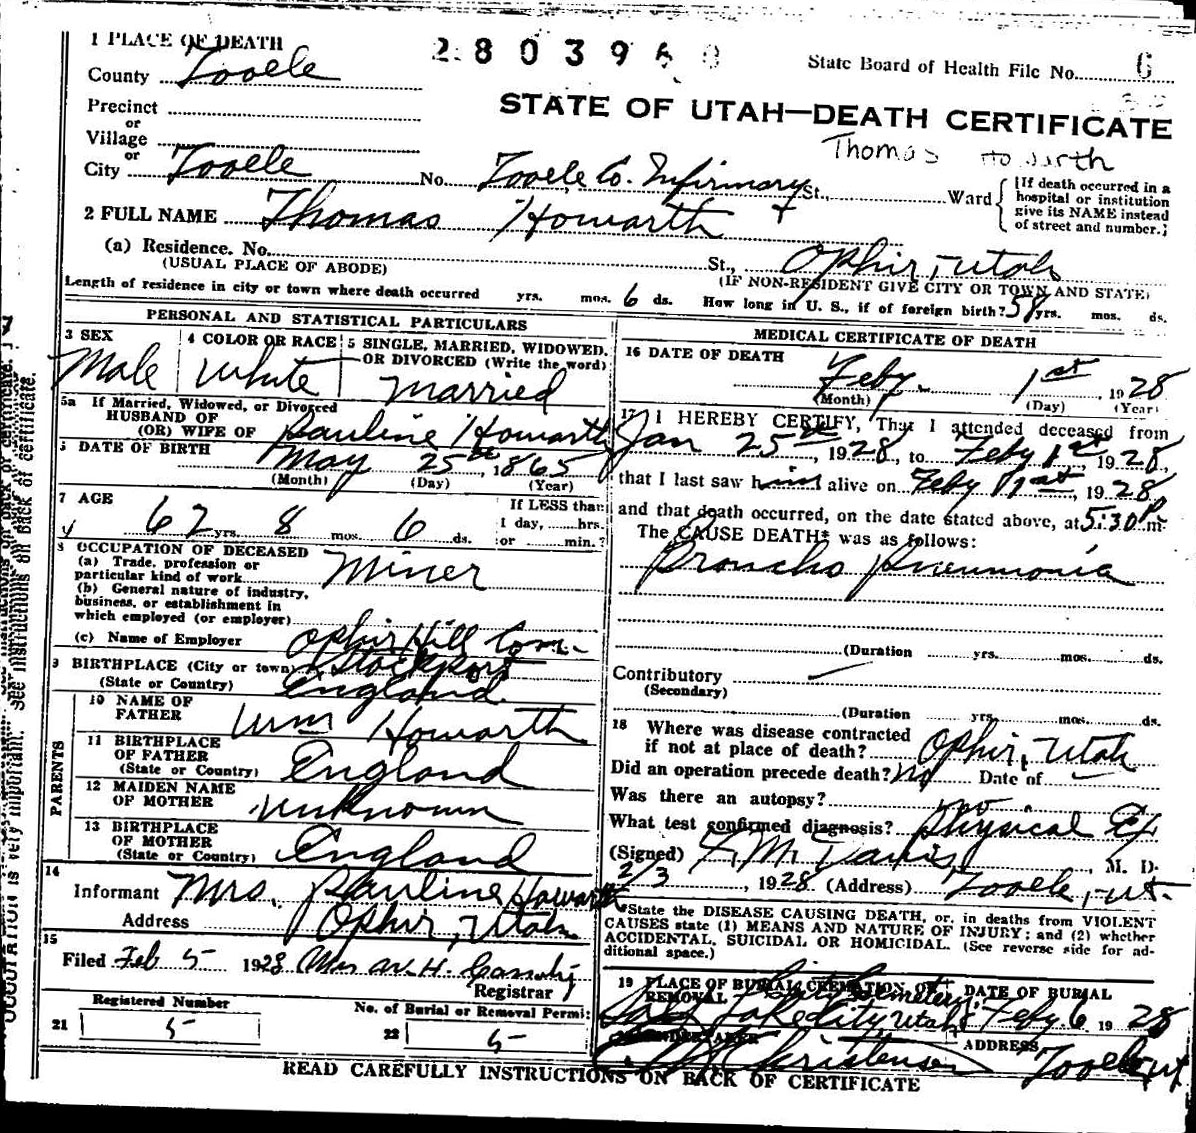 1 PLACE OF DEATH
2 8 0 3 9 6 0
State Board of Health File No. 6
County Tooele
STATE OF UTAH—DEATH CERTIFICATE
Precinct
or
Village
Thomas Howarth
or
City Tooele No. Tooele Co. Infirmary St., Ward
[If death occurred in a hospital or institution give its NAME instead of street and number.]
2 FULL NAME Thomas Howarth
(a) Residence. No. St., Ophir, Utah
(USUAL PLACE OF ABODE) (IF NON-RESIDENT GIVE CITY OR TOWN AND STATE)
Length of residence in city or town where death occurred yrs. mos. 6 ds. How long in U. S., if of foreign birth? 58 yrs. mos. ds.
PERSONAL AND STATISTICAL PARTICULARS
3 SEX
Male
4 COLOR OR RACE
White
5 SINGLE, MARRIED, WIDOWED, OR DIVORCED (Write the word)
Married
5a If Married, Widowed, or Divorced
HUSBAND OF
(OR) WIFE OF Pauline Howarth
DATE OF BIRTH
May 25th, 1865
(Month) (Day) (Year)
7 AGE
62 yrs. 8 mos. 6 ds.
If LESS than
1 day, hrs.
or min.?
8 OCCUPATION OF DECEASED
(a) Trade, profession or
particular kind of work Miner
(b) General nature of industry,
business, or establishment in
which employed (or employer)
(c) Name of Employer Ophir Hill Com.
9 BIRTHPLACE (City or town) Stockport
(State or Country) England
PARENTS
10 NAME OF
FATHER Wm Howarth
11 BIRTHPLACE
OF FATHER
(State or Country) England
12 MAIDEN NAME
OF MOTHER Unknown
13 BIRTHPLACE
OF MOTHER
(State or Country) England
14
Informant Mrs. Pauline Howarth
Address Ophir, Utah
15
Filed Feb 5 1928 Mrs W. H.
Registrar
Registered Number
21 5
No. of Burial or Removal Permit
22 5
MEDICAL CERTIFICATE OF DEATH
16 DATE OF DEATH
Feby. 1st, 1928
(Month) (Day) (Year)
17 I HEREBY CERTIFY, That I attended deceased from
Jan 25th, 1928, to Feby 1st, 1928,
that I last saw him alive on Feby 1st, 1928
and that death occurred, on the date stated above, at 5:30 P. m.
The CAUSE DEATH* was as follows:
Broncho Pneumonia
(Duration yrs. mos. ds.
Contributory
(Secondary)
(Duration yrs. mos. ds.
18 Where was disease contracted
if not at place of death? Ophir, Utah
Did an operation precede death? no Date of
Was there an autopsy? no
What test confirmed diagnosis? Physical Ex
(Signed) M. Davis, M. D.
2/3, 1928 (Address) Tooele, Ut.
*State the DISEASE CAUSING DEATH, or, in deaths from VIOLENT
CAUSES state (1) MEANS AND NATURE OF INJURY; and (2) whether
ACCIDENTAL, SUICIDAL OR HOMICIDAL. (See reverse side for ad-
ditional space.)
19 PLACE OF BURIAL, CREMATION, OR REMOVAL
City Cemetery
Salt Lake City, Utah
DATE OF BURIAL
Feby. 6 1928
UNDERTAKER
Christensen
ADDRESS
Tooele, Ut
READ CAREFULLY INSTRUCTIONS ON BACK OF CERTIFICATE
See instructions on back of certificate.